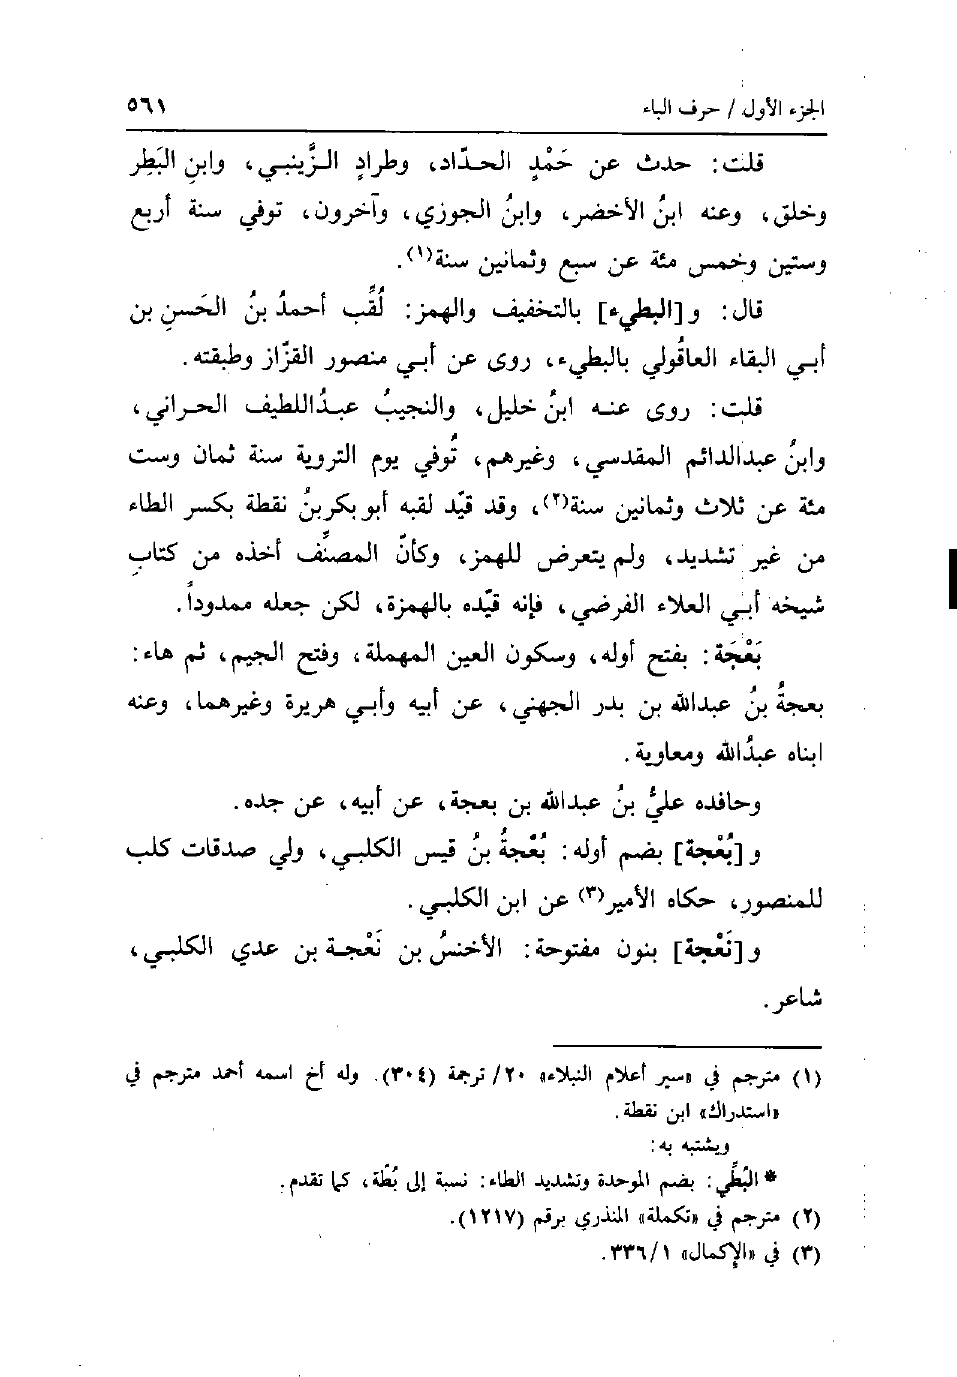 الجزء الأول / حرف الباء ٥٦١
قلت: حدث عن حَمْدٍ الحدّاد، وطرادٍ الزَّينبي، وابنِ البَطِر
وخلق، وعنه ابنُ الأخضر، وابنُ الجوزي، وآخرون، توفي سنة أربع
وستين وخمس مئة عن سبع وثمانين سنة(١).
قال: و[البطيء] بالتخفيف والهمز: لُقِّب أحمدُ بنُ الحَسنِ بن
أبي البقاء العاقُولي بالبطيء، روى عن أبي منصور القزّاز وطبقته.
قلت: روى عنه ابنُ خليل، والنجيبُ عبدُاللطيف الحراني،
وابنُ عبدالدائم المقدسي، وغيرهم، تُوفي يوم التروية سنة ثمان وست
مئة عن ثلاث وثمانين سنة(٢)، وقد قيّد لقبه أبو بكر بنُ نقطة بكسر الطاء
من غير تشديد، ولم يتعرض للهمز، وكأنّ المصنِّف أخذه من كتابِ
شيخه أبي العلاء الفرضي، فإنه قيّده بالهمزة، لكن جعله ممدوداً.
بَعْجَة: بفتح أوله، وسكون العين المهملة، وفتح الجيم، ثم هاء:
بعجةُ بنُ عبدالله بن بدر الجهني، عن أبيه وأبي هريرة وغيرهما، وعنه
ابناه عبدُالله ومعاوية.
وحافده عليُّ بنُ عبدالله بن بعجة، عن أبيه، عن جده.
و[بُعْجة] بضم أوله: بُعْجةُ بنُ قيس الكلبي، ولي صدقات كلب
للمنصور، حكاه الأمير(٣) عن ابن الكلبي.
و[نَعْجة] بنون مفتوحة: الأخنسُ بن نَعْجة بن عدي الكلبي،
شاعر.
(١) مترجم في «سير أعلام النبلاء» ٢٠/ ترجمة (٣٠٤). وله أخ اسمه أحمد مترجم في
«استدراك» ابن نقطة.
ويشتبه به:
* البُطِّي: بضم الموحدة وتشديد الطاء: نسبة إلى بُطّة، كما تقدم.
(٢) مترجم في «تكملة» المنذري برقم (١٢١٧).
(٣) في «الإكمال» ١/ ٣٣٦.